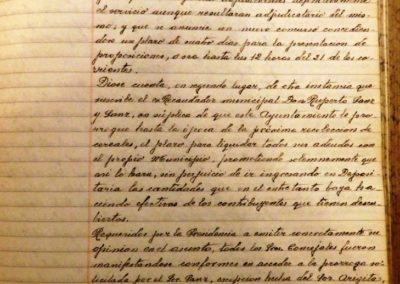 el servicio aunque resultaran adjudicatario del mis-
mo; y que se anuncie un nuevo concurso concedien-
dose un plazo de cuatro dias para la presentacion de
proposiciones, o sea hasta las 12 horas del 21 de los co-
rrientes.
Diose cuenta, en segundo lugar, de otra instancia que
suscribe el Recaudador municipal Don Ruperto Sanz
y Sanz, en súplica de que este Ayuntamiento le pro-
rrogue hasta la época de la próxima recoleccion de
cereales, el plazo para liquidar todos sus adeudos con
el propio Municipio, prometiendo solemnemente que
asi lo hara, sin perjuicio de ir ingresando en Deposi-
taria las cantidades que en el entretanto vaya ha-
ciendo efectivas de los contribuyentes que tienen descu-
biertos.
Requeridos por la Presidencia a emitir concretamente su
opinion en el asunto, todos los Sres. Concejales fueron
manifestandose conformes en acceder a la prorroga so-
licitada por el Sr. Sanz, excepcion hecha del Sr.